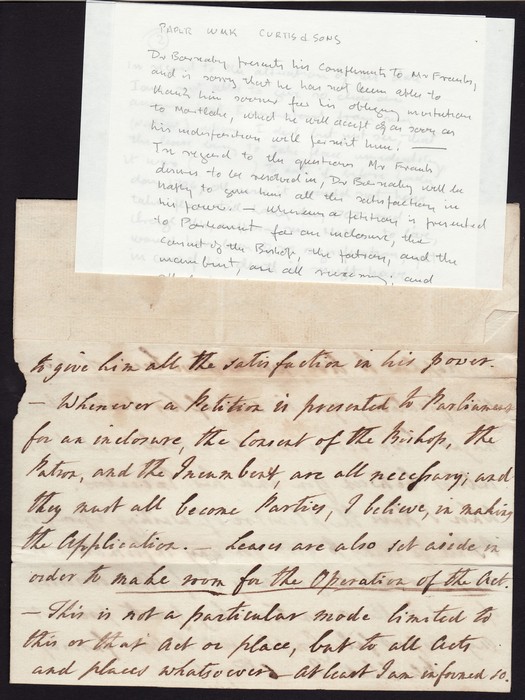 PAPER WMK CURTIS & SONS
Dr Barnaby presents his Compliments to Mr Franks,
and is sorry that he has not been able to
thank him sooner for his obliging invitation
to Mortlake, which he will accept of as soon as
his indisposition will permit him. —
In regard to the questions Mr Franks
desires to be resolved in, Dr Barnaby will be
happy to give him all the satisfaction in
his power. — Whenever a petition is presented
to Parliament for an inclosure, the
consent of the Bishop, the patron, and the
incumbent, are all necessary, and
to give him all the satisfaction in his power.
— Whenever a Petition is presented to Parliament
for an inclosure, the Consent of the Bishop, the
Patron, and the Incumbent, are all necessary; and
they must all become Parties, I believe, in making
the Application. — Leases are also set aside in
order to make room for the Operation of the Act.
— This is not a particular mode limited to
this or that Act or place, but to all Acts
and places whatsoever — At least I am informed so.